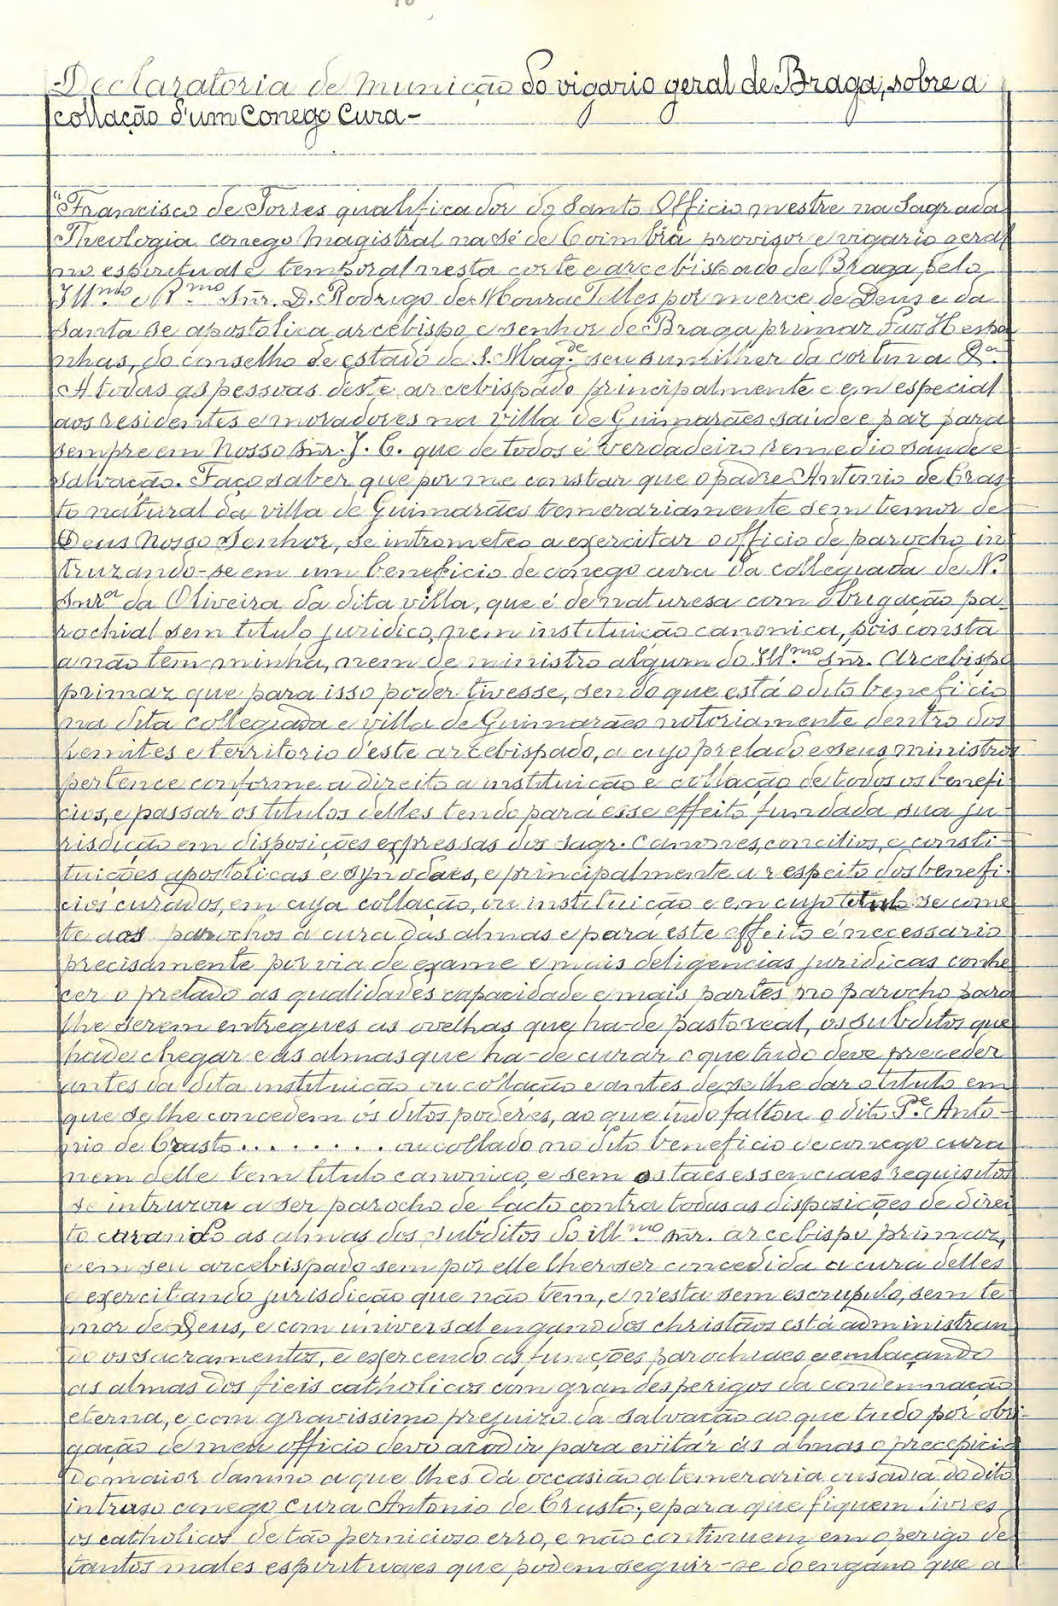 Declaratoria de munição do vigario geral de Braga, sobre a
collação d'um Conego Cura-
"Francisco de Torres qualificador do Santo Officio mestre na Sagrada
Theologia conego Magistral na Sé de Coimbra provisor e vigario geral
no espiritual e temporal nesta corte e arcebispado de Braga pelo
Ill.mo e R.mo Snr. D. Rodrigo de Moura Telles por merce de Deus e da
Santa Se apostolica arcebispo e senhor de Braga primaz das Hespa
nhas, do conselho de estado de S. Mag.de seu sumilher da cortina &.a
A todas as pessoas deste arcebispado principalmente e em especial
aos residentes e moradores na villa de Guimarães saude e paz para
sempre em Nosso Snr. J. C. que de todos é verdadeiro remedio saude e
salvação. Faço saber que por me constar que o padre Antonio de Cras
to natural da villa de Guimarães temerariamente sem temor de
Deus Nosso Senhor, se intrometeo a exercitar o officio de parocho in
truzando-se em um beneficio de conego cura da collegiada de N.
Snr.a da Oliveira da dita villa, que é de naturesa com obrigação pa-
rochial sem titulo juridico, nem instituição canonica, pois consta
a não tem minha, nem de ministro algum do Ill.mo Snr. Arcebispo
primaz que para isso poder tivesse, sendo que está o dito beneficio
na dita collegiada e villa de Guimarães notoriamente dentro dos
lemites e territorio d'este arcebispado, a cujo prelado e seus ministros
pertence conforme a direito a instituição e collação de todos os benefi-
cios, e passar os titulos delles tendo para esse effeito fundada sua ju-
risdição em disposições expressas dos sagr. canones, concilios, e consti-
tuições apostolicas e synodaes, e principalmente a respeito dos benefi-
cios curados, em cuja collação, ou instituição e em cujo titulo se come
te aos parochos a cura das almas e para este effeito é necessario
precisamente por via de exame e mais deligencias juridicas conhe
cer o prelado as qualidades capacidade e mais partes no parocho para
lhe serem entregues as ovelhas que ha-de pastoreal, os subditos que
hade chegar e as almas que ha-de curar o que tudo deve preceder
antes da dita instituição ou collação e antes de se lhe dar o titulo em
que se lhe concedem os ditos poderes, ao que tudo faltou o dito P.e Anto-
nio de Crasto . . . . . . . . ou collado no dito beneficio de conego cura
nem delle tem titulo canonico, e sem os taes essenciaes requisitos
se intruzou a ser parocho de facto contra todas as disposições de direi
to curando as almas dos subditos do ill.mo snr. arcebispo primaz,
e em seu arcebispado sem por elle lhe ser concedida a cura delles
e exercitando jurisdição que não tem, e n'esta sem escrupulo, sem te
mor de Deus, e com universal engano dos christãos está administran
do os sacramentos, e exercendo as funcções parochiaes e enlaçando
as almas dos fieis catholicos com grandes perigos da condemnação
eterna, e com gravissimo prejuizo da salvação ao que tudo por obri-
gação de meu officio devo acodir para evitar ás almas o precepicio
do maior damno a que lhes dá occasião a temeraria ousadia do dito
intruso conego cura Antonio de Crasto; e para que fiquem livres
os catholicos de tão pernicioso erro, e não continuem em o perigo de
tantos males espirituaes que podem seguir-se do engano que a